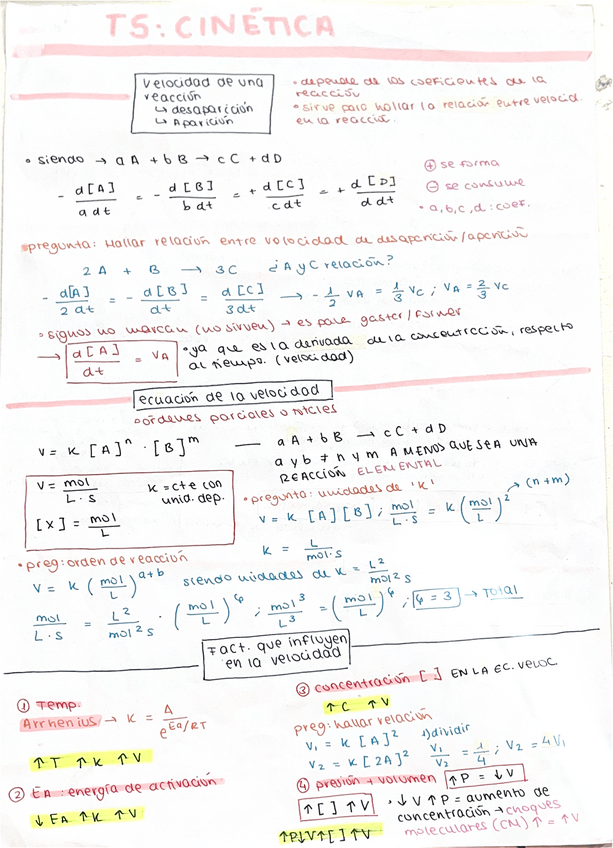 T5: CINÉTICA
velocidad de una
reacción
↳ desaparición
↳ Aparición
• depende de los coeficientes de la
reacción
• sirve para hallar la relación entre velocid.
en la reacción.
• siendo → a A + b B → c C + d D
- d[A]/a dt = - d[B]/b dt = + d[C]/c dt = + d[D]/d dt
⊕ se forma
⊖ se consume
• a,b,c,d: coef.
pregunta: Hallar relación entre velocidad de desaparición/aparición
2 A + B → 3C ¿A y C relación?
- d[A]/2 dt = - d[B]/dt = d[C]/3dt → - 1/2 VA = 1/3 VC ; VA = 2/3 VC
• signos no marcan (no sirven) → es para gastar/formar
→ d[A]/dt = VA
• ya que es la derivada de la concentracción, respecto
al tiempo. (velocidad)
ecuación de la velocidad
• órdenes parciales o totales
V = K [A]^n · [B]^m — a A + b B → c C + d D
a y b ≠ n y m A MENOS QUE SEA UNA
REACCIÓN ELEMENTAL
V = mol/L·s
K = cte con
unid. dep.
[X] = mol/L
• pregunta: unidades de 'K'
V = K [A][B] ; mol/L·s = K (mol/L)^2 → (n+m)
K = L/mol·s
• preg: orden de reacción
V = K (mol/L)^a+b siendo uidades de K = L^2/mol^2 s
mol/L·s = L^2/mol^2 s · (mol/L)^φ ; mol^3/L^3 = (mol/L)^φ ; φ = 3 → Total
Fact. que influyen
en la velocidad
① Temp.
Arrhenius → K = A/e^Ea/RT
↑T ↑K ↑V
② EA : energía de activación
↓EA ↑K ↑V
③ concentración [ ] EN LA EC. VELOC
↑C ↑V
preg: hallar relación
V1 = K [A]^2 1) dividir
V2 = K [2A]^2 V1/V2 = 1/4 ; V2 = 4V1
④ presión + volumen ↑P = ↓V
↑[ ] ↑V
• ↓V ↑P = aumento de
concentración → choques
moleculares (CM) ↑ = ↑V
↑P↓V↑[ ]↑V